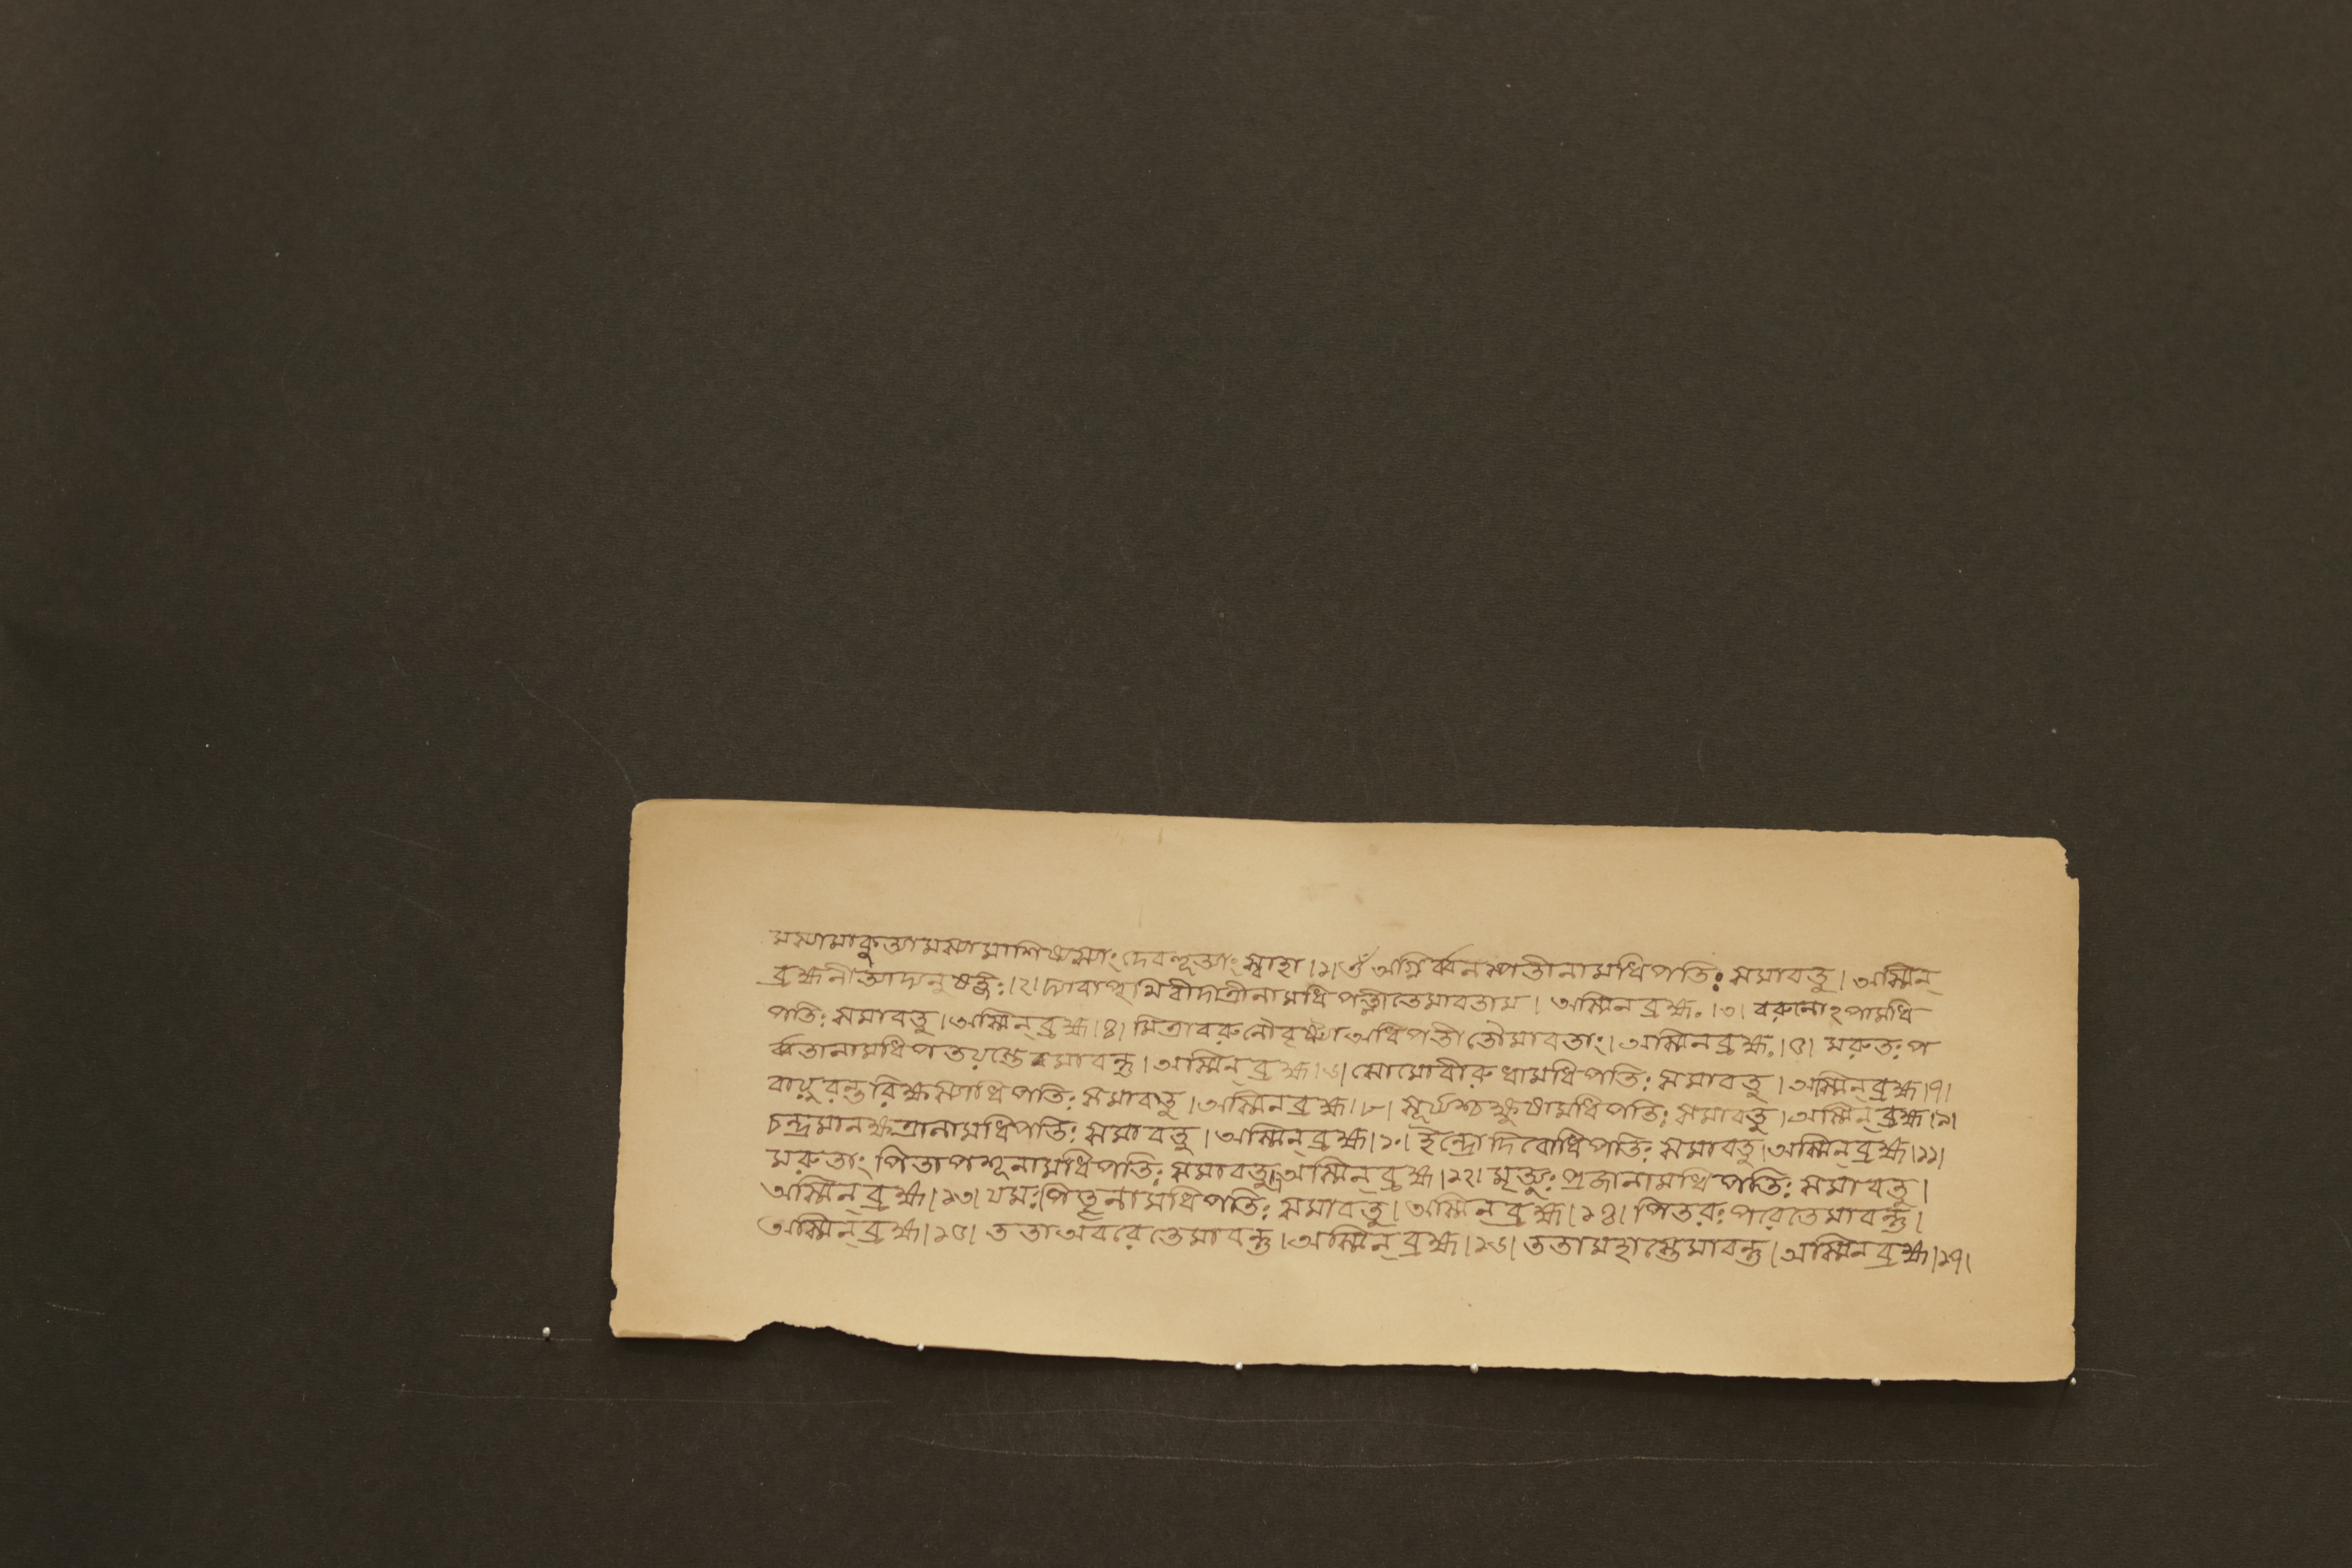 মস্যামাকুত্যামস্যামাশিষ্যস্যাং দেবহূত্যাং স্বাহা।১। ওঁ অগ্নির্ব্বনস্পতীনামধিপতিঃ সমাবতু। অস্মিন্
ব্রহ্মনীত্যাদ্যনুষঙ্গঃ।২। দ্যাবাপৃথিবীদাত্রীনামধিপত্নীতেমাবতাম। অস্মিন ব্রহ্ম০।৩। বরুনোঽপামধি
পতিঃ সমাবতু। অস্মিন্ ব্রহ্ম।৪। মিত্রাবরুনৌবৃষ্ট্যা অধিপতীতৌমাবতাং। অস্মিন ব্রহ্ম০।৫। মরুতঃ প
র্ব্বতানামধিপতয়স্তেমাবন্তু। অস্মিন্ ব্রহ্ম।৬। সোমোবীরুধামধিপতিঃ সমাবতু। অস্মিন্ ব্রহ্ম।৭।
বায়ুরন্তরিক্ষস্যাধিপতিঃ সমাবতু। অস্মিন ব্রহ্ম।৮। সূর্য্যশ্চক্ষুষামধিপতিঃ সমাবতু। অস্মিন্ ব্রহ্ম।৯।
চন্দ্রমানক্ষত্রানামধিপতিঃ সমাবতু। অস্মিন্ ব্রহ্ম।১০। ইন্দ্রোদিবোধিপতিঃ সমাবতু। অস্মিন্ ব্রহ্ম।১১।
মরুতাং পিতাপশূনামধিপতিঃ সমাবতু। অস্মিন্ ব্রহ্ম।১২। মৃত্যুঃ প্রজানামধিপতিঃ সমাবতু।
অস্মিন্ ব্রহ্ম।১৩। যমঃ পিতৃনামধিপতিঃ সমাবতু। অস্মিন্ ব্রহ্ম।১৪। পিতরঃ পরেতেমাবন্তু।
অস্মিন্ ব্রহ্ম।১৫। ততাঅবরেতেমাবন্তু। অস্মিন্ ব্রহ্ম।১৬। ততামহাস্তেমাবন্তু। অস্মিন ব্রহ্ম।১৭।